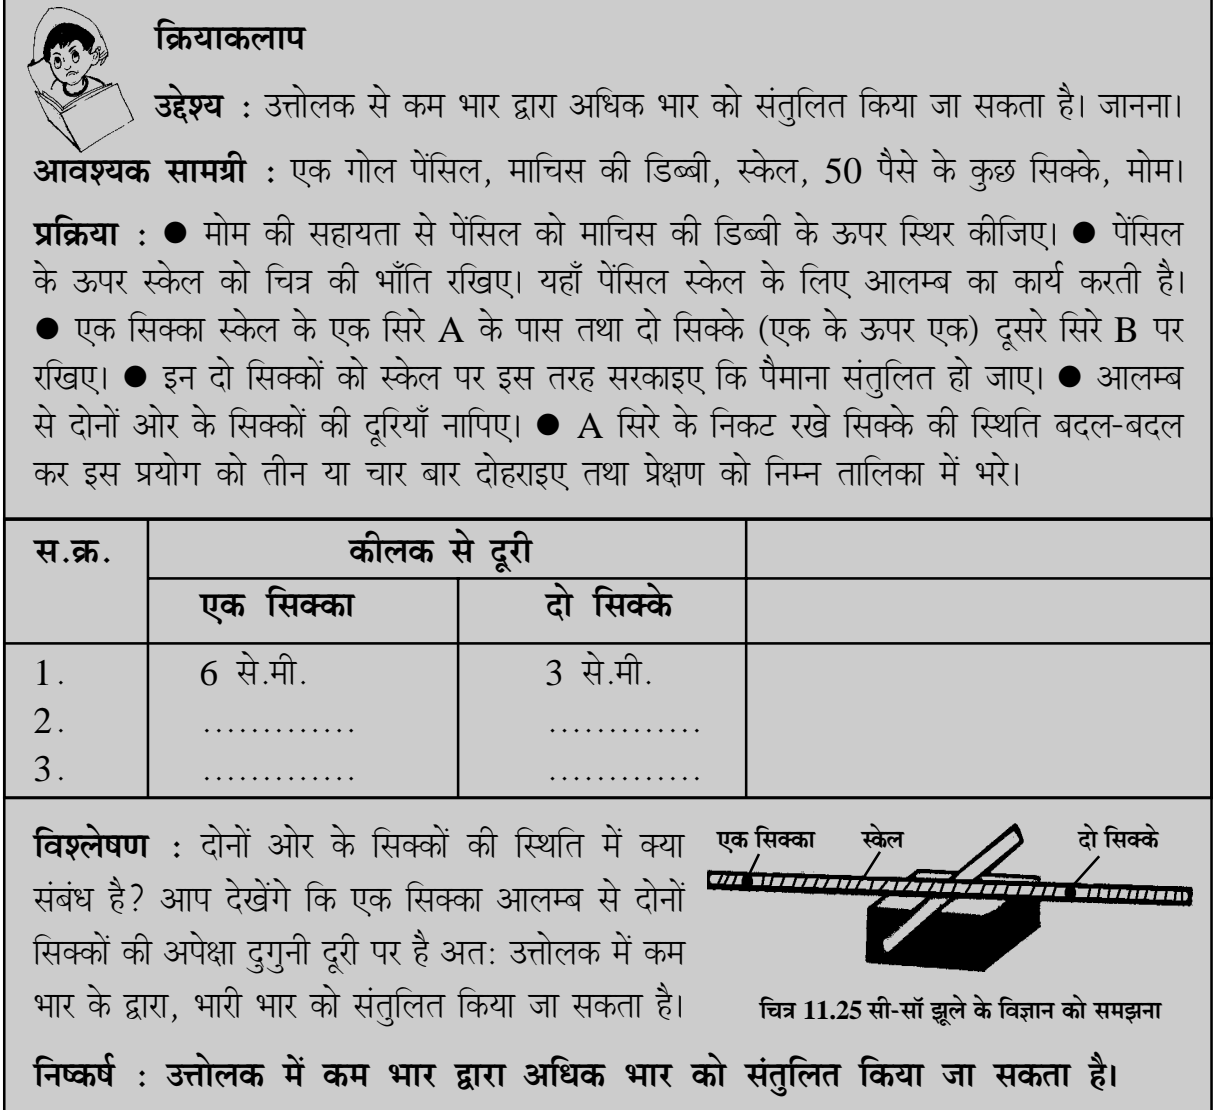 क्रियाकलाप
उद्देश्य : उत्तोलक से कम भार द्वारा अधिक भार को संतुलित किया जा सकता है। जानना।
आवश्यक सामग्री : एक गोल पेंसिल, माचिस की डिब्बी, स्केल, 50 पैसे के कुछ सिक्के, मोम।
प्रक्रिया : ● मोम की सहायता से पेंसिल को माचिस की डिब्बी के ऊपर स्थिर कीजिए। ● पेंसिल
के ऊपर स्केल को चित्र की भाँति रखिए। यहाँ पेंसिल स्केल के लिए आलम्ब का कार्य करती है।
● एक सिक्का स्केल के एक सिरे A के पास तथा दो सिक्के (एक के ऊपर एक) दूसरे सिरे B पर
रखिए। ● इन दो सिक्कों को स्केल पर इस तरह सरकाइए कि पैमाना संतुलित हो जाए। ● आलम्ब
से दोनों ओर के सिक्कों की दूरियाँ नापिए। ● A सिरे के निकट रखे सिक्के की स्थिति बदल-बदल
कर इस प्रयोग को तीन या चार बार दोहराइए तथा प्रेक्षण को निम्न तालिका में भरे।
स.क्र. कीलक से दूरी
एक सिक्का दो सिक्के
1. 6 से.मी. 3 से.मी.
2. ............. .............
3. ............. .............
विश्लेषण : दोनों ओर के सिक्कों की स्थिति में क्या
संबंध है? आप देखेंगे कि एक सिक्का आलम्ब से दोनों
सिक्कों की अपेक्षा दुगुनी दूरी पर है अतः उत्तोलक में कम
भार के द्वारा, भारी भार को संतुलित किया जा सकता है।
एक सिक्का स्केल दो सिक्के
चित्र 11.25 सी-सॉ झूले के विज्ञान को समझना
निष्कर्ष : उत्तोलक में कम भार द्वारा अधिक भार को संतुलित किया जा सकता है।